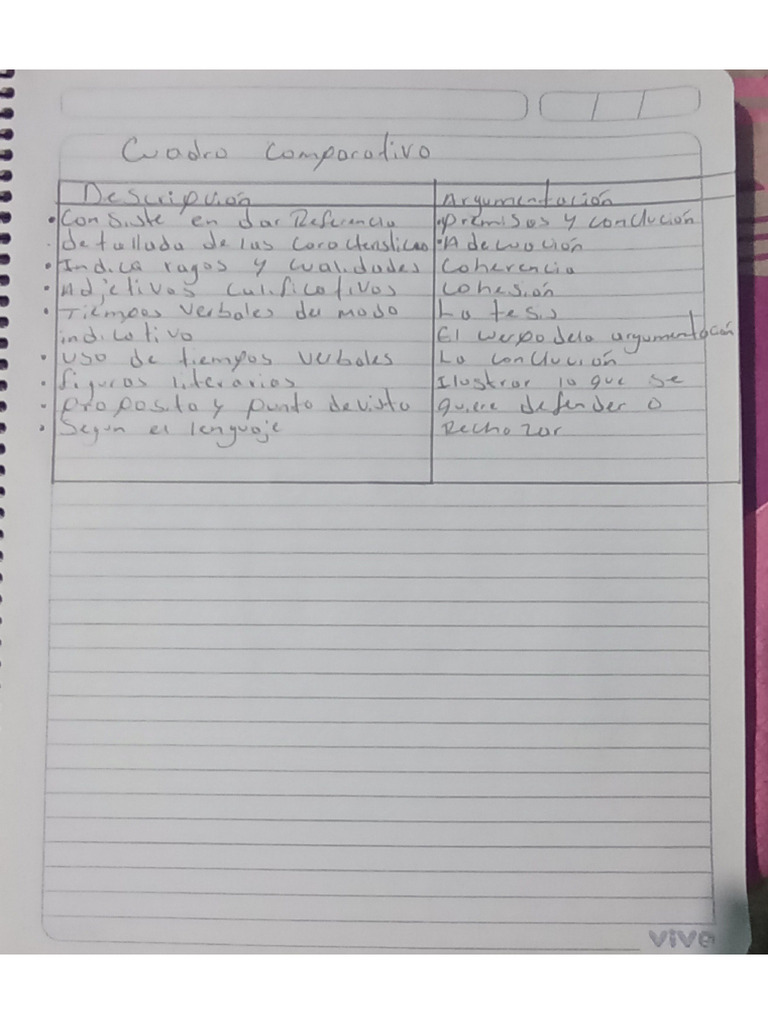 Cuadro Comparativo
Descripción
Argumentación
• Consiste en dar Referencia
detallada de las Caracteristicas
• Indica ragos y cualidades
• Adjetivos calificativos
• Tiempos verbales del modo
indicativo
• uso de tiempos verbales
• figuras literarias
• proposito y punto de vista
• Segun el lenguaje
• premisas y conclución
• Adecuación
Coherencia
Cohesión
La tesis
El cuerpo de la argumentación
La conclución
Ilustrar lo que se
quiere defender o
Rechazar
vivo